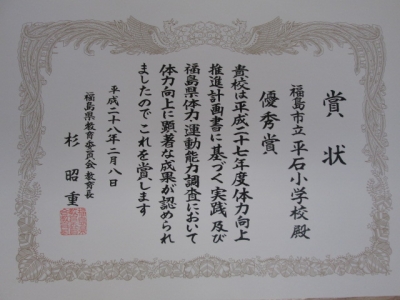 賞状
福島市立平石小学校殿
優秀賞
貴校は平成二十七年度体力向上
推進計画書に基づく実践及び
福島県体力運動能力調査において
体力向上に顕著な成果が認められ
ましたのでこれを賞します
平成二十八年二月八日
福島県教育委員会教育長
杉昭重